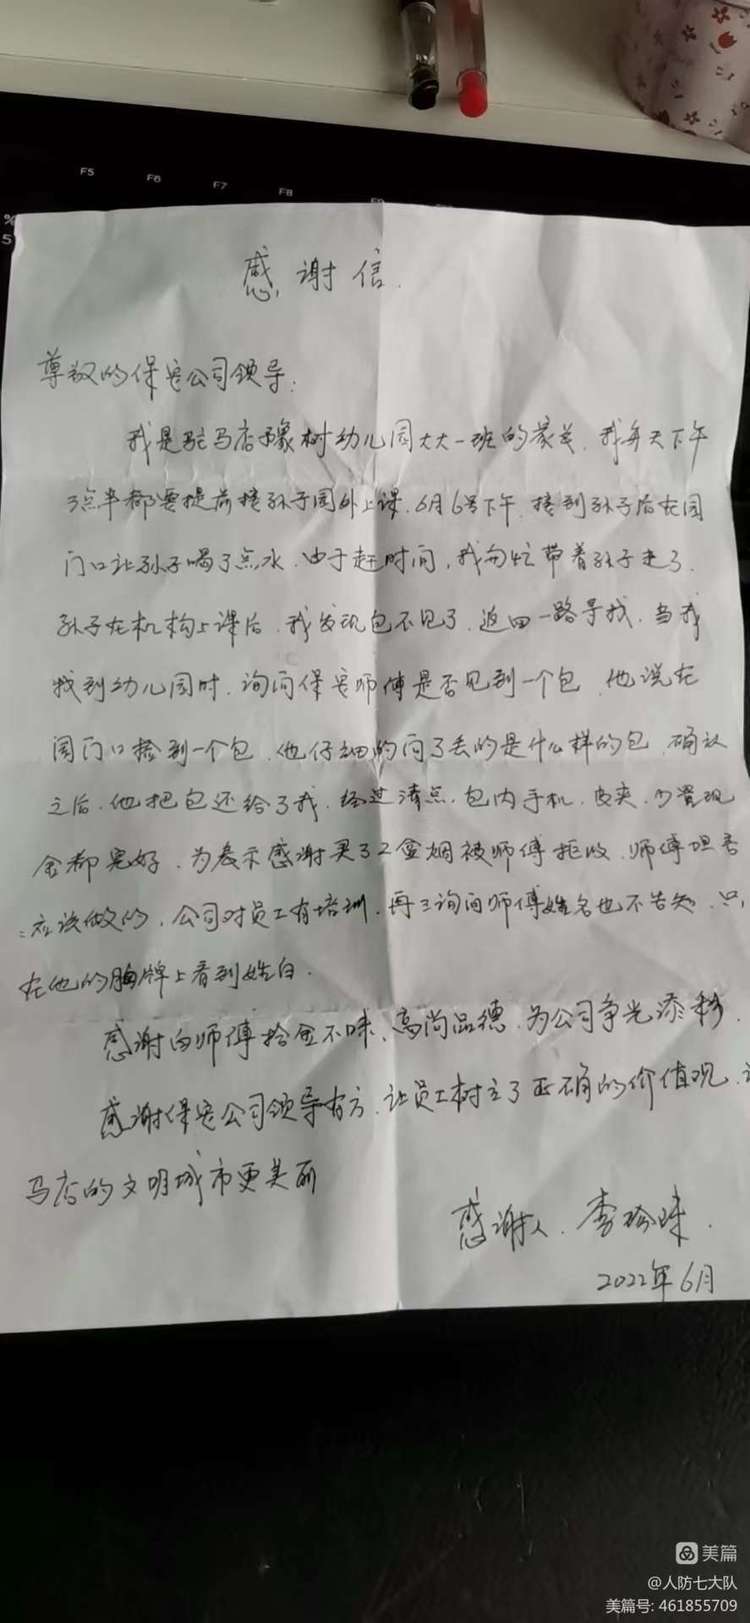 F5 F6 F7 F8
%
5
感谢信.
尊敬的保安公司领导:
我是驻马店橡树幼儿园大大一班的家长.我每天下午
3点半都要提前接孙子园外上课.6月6号下午.接到孙子后在园
门口让孙子喝了点水.由于赶时间,我匆忙带着孙子走了.
孙子在机构上课后.我发现包不见了.返回一路寻找.当我
找到幼儿园时.询问保安师傅是否见到一个包.他说在
园门口捡到一个包.他仔细的问了丢的是什么样的包.确认
之后.他把包还给了我.经过清点.包内手机.皮夹.少量现
金都完好.为表示感谢买了2盒烟被师傅拒收.师傅坦言
应该做的,公司对员工有培训.再三询问师傅姓名也不告知.只
在他的胸牌上看到姓白.
感谢白师傅拾金不昧、高尚品德.为公司争光添彩.
感谢保安公司领导有方.让员工树立了正确的价值观.
马店的文明城市更美丽
感谢人.李
2022年6月
美篇
@人防七大队
美篇号: 461855709